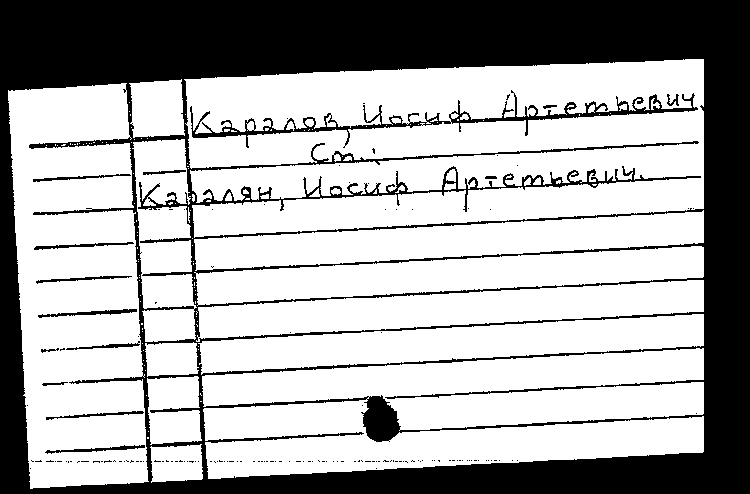 Каралов, Иосиф Артетьевич.
Ст.:
Каралян, Иосиф Артетьевич.